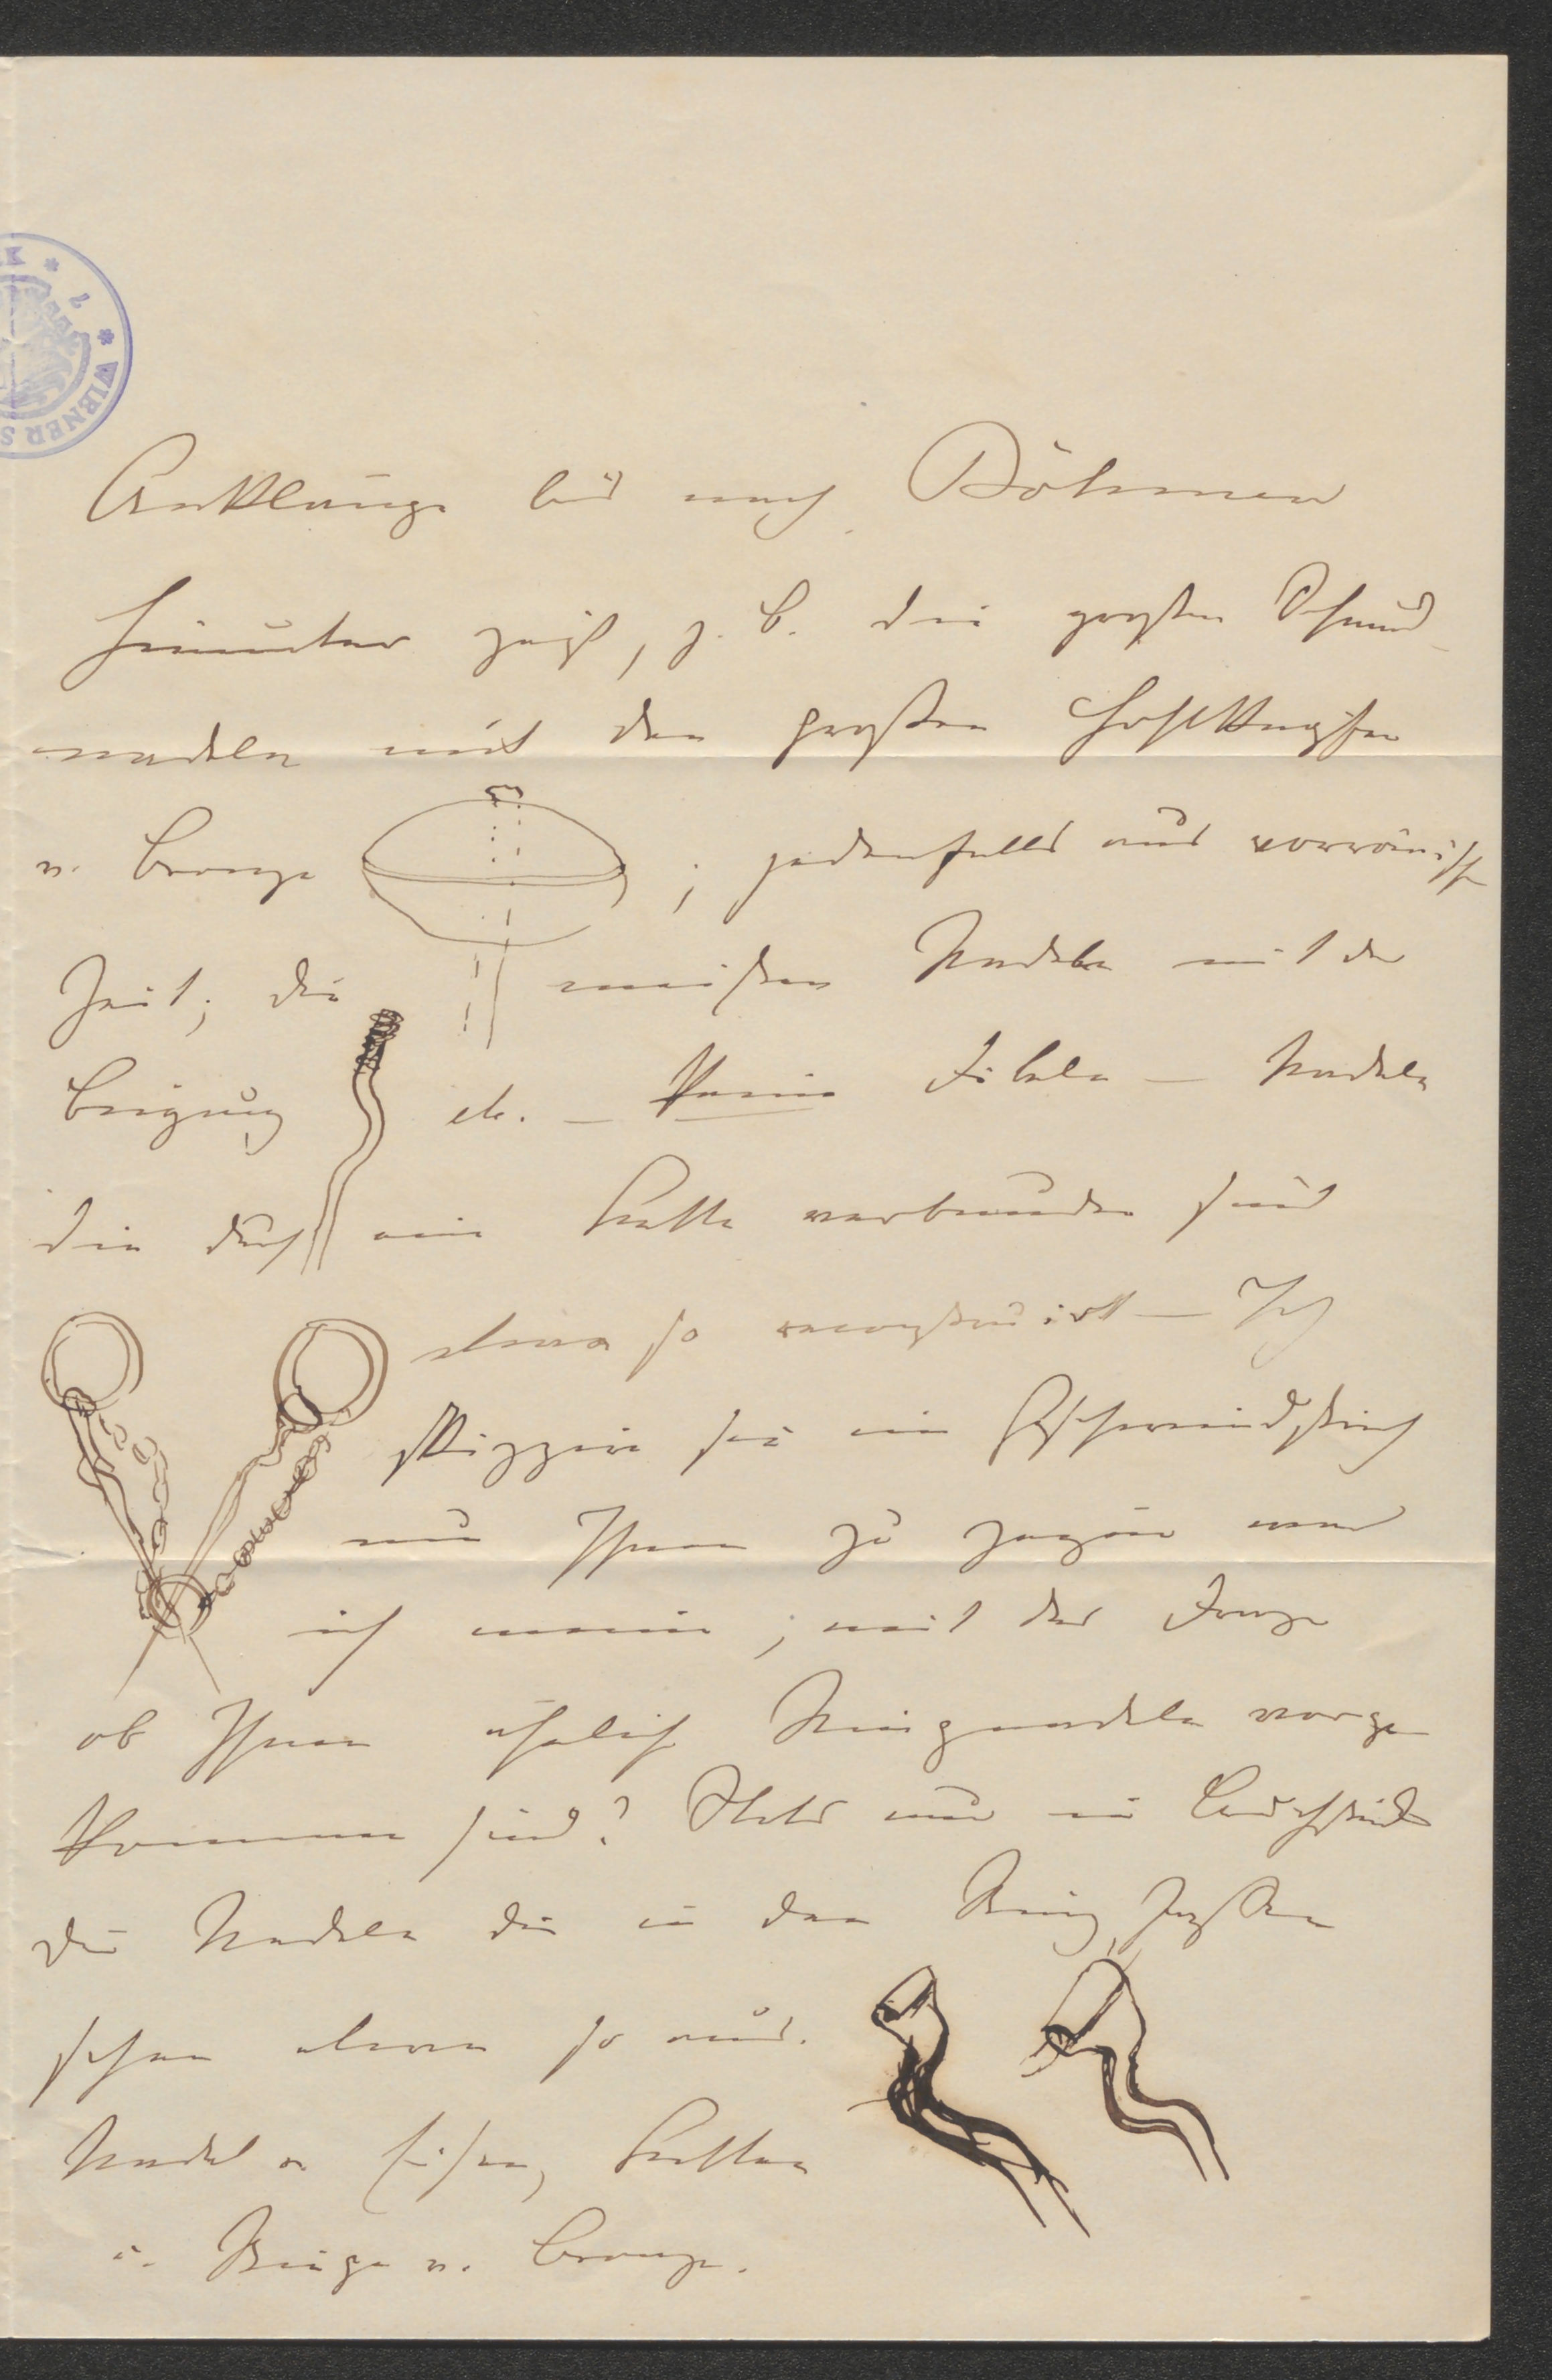 WIENER S
Anklänge bis nach Böhmen
hinunter zeigt, z. B. die großen Schmuck-
nadeln mit den großen Hohlknöpfen
v. Bronze ; jedenfalls aus vorrömisch
Zeit; die meisten Nadeln mit der
Beigung etc. – Keine Fibeln – Nadeln
die durch eine Kette verbunden sind
etwa so – Ich
skizzire sie im Geschwindstrich
um Ihnen zu zeigen was
ich meine; mit der Frage
ob Ihnen ähnlich Ringnadeln vorge
kommen sind? Stets nur in Bruchstücken
Die Nadeln die in den Ring faßten
sehen etwa so aus.
Nadel v. Eisen, Ketten
u. Ringe v. Bronze.